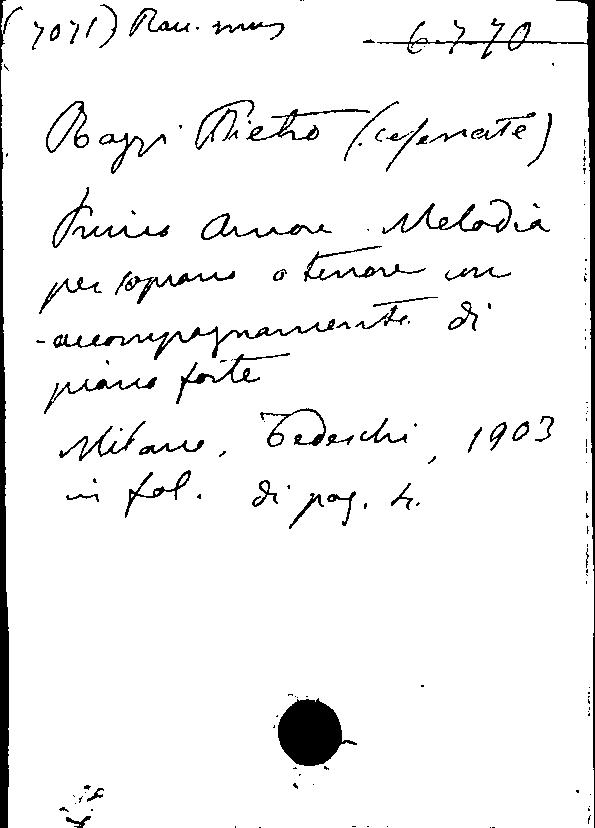 (7071) Racc. mus 6.7.70
Raggi Pietro (cesenate)
Primo Amore. Melodia
per soprano o tenore con
accompagnamento di
piano forte
Milano, Tedeschi, 1903
in fol. di pag. 4.